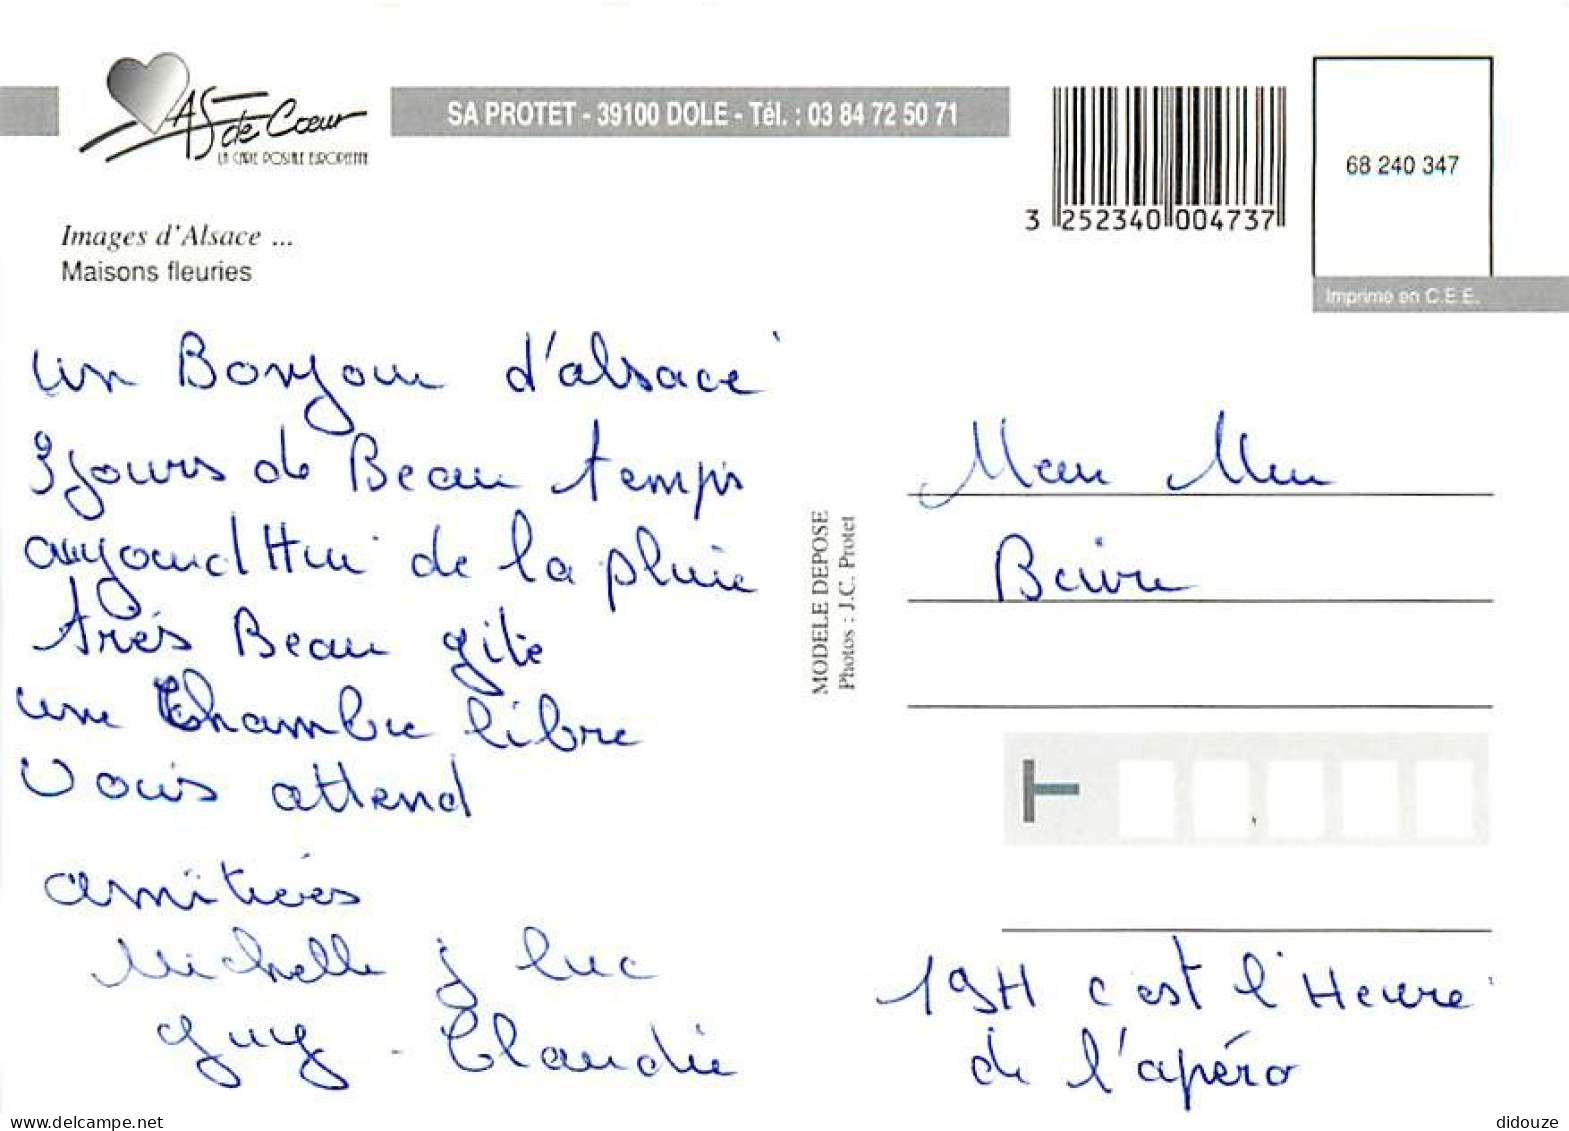 As de Cœur
LA CARTE POSTALE EUROPEENNE
SA PROTET - 39100 DOLE - Tél. : 03 84 72 50 71
3 252340 004737
68 240 347
Imprimé en C.E.E.
Images d'Alsace ...
Maisons fleuries
un Bonjour d'alsace
3 jours de Beau temps
aujourd'Hui de la pluie
très Beau gite
une Chambre libre
vous attend
amitiées
Michelle j luc
guy - Claudie
MODELE DEPOSE
Photos : J.C. Protet
19H c'est l'Heure
de l'apéro
www.delcampe.net
didouze